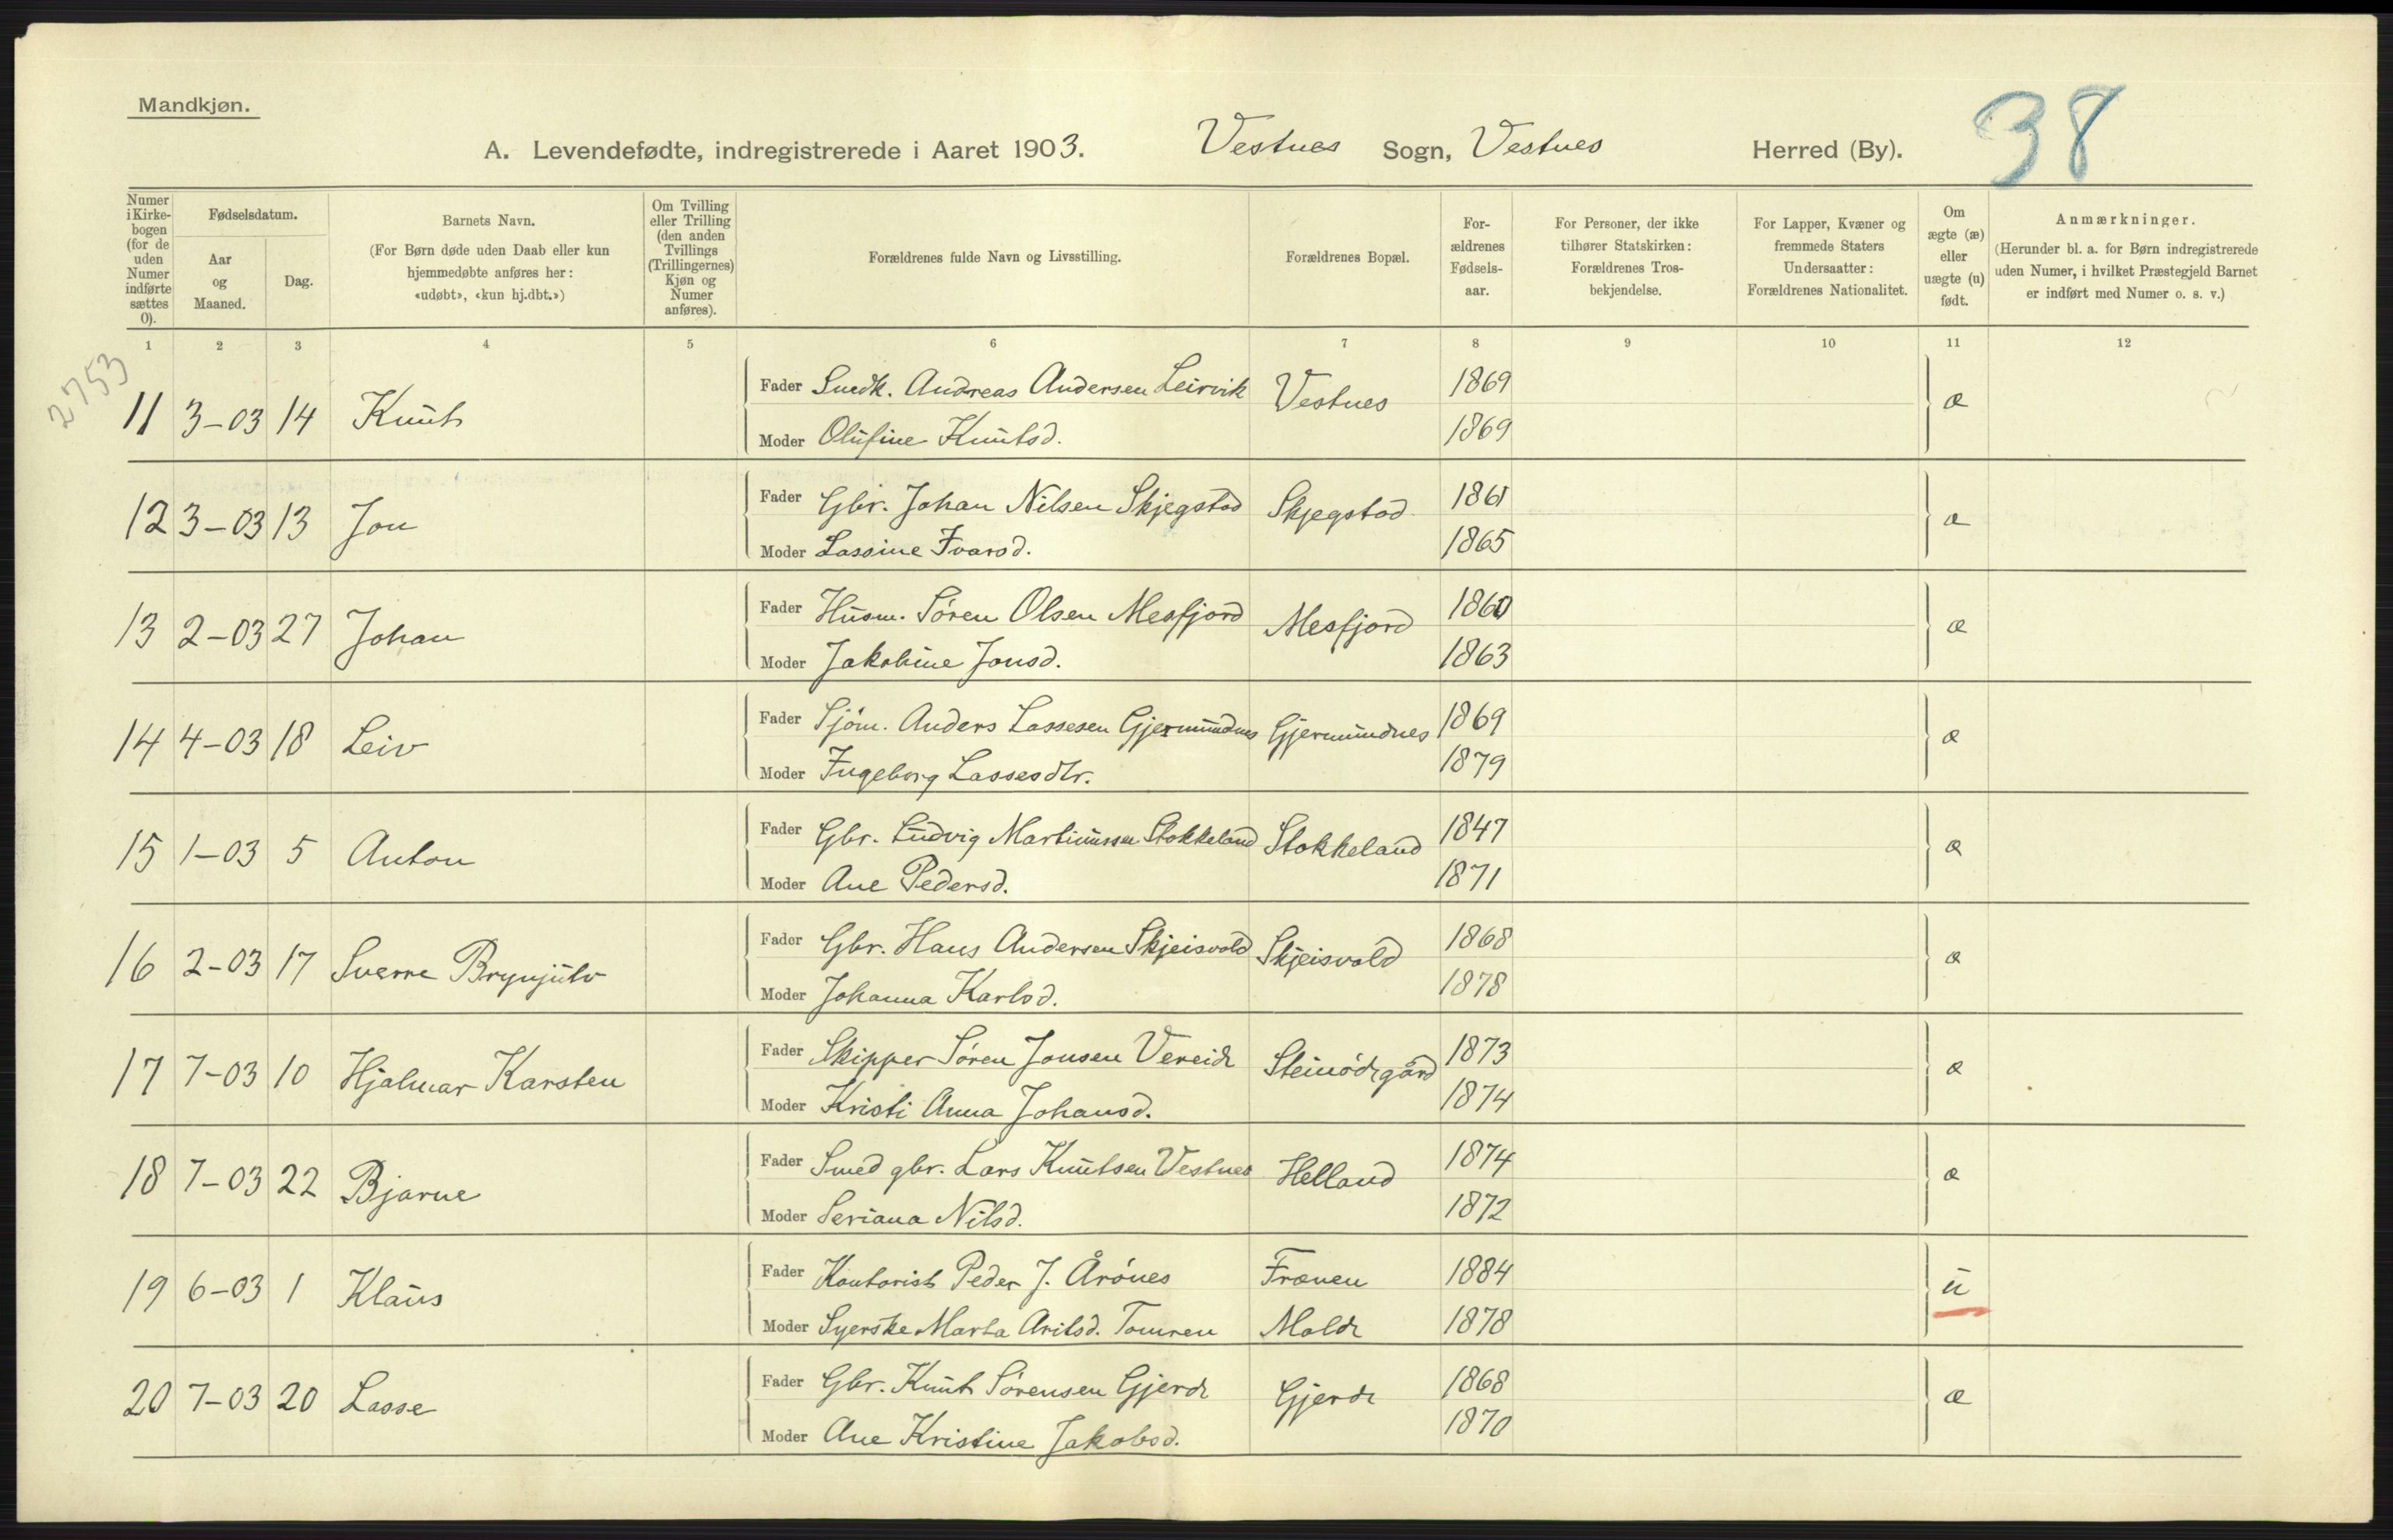 Mandkjøn.
38
A. Levendefødte, indregistrerede i Aaret 1903. Vestnes Sogn, Vestnes Herred (By).
Numer i Kirkebogen (for de uden Numer indførte sættes 0).
Fødselsdatum.
Aar og Maaned.
Dag.
Barnets Navn.
(For Børn døde uden Daab eller kun hjemmedøbte anføres her: «udøbt», «kun hj.dbt.»)
Om Tvilling eller Trilling (den anden Tvillings (Trillingernes) Kjøn og Numer anføres).
Forældrenes fulde Navn og Livsstilling.
Forældrenes Bopæl.
Forældrenes Fødselsaar.
For Personer, der ikke tilhører Statskirken: Forældrenes Trosbekjendelse.
For Lapper, Kvæner og fremmede Staters Undersaatter: Forældrenes Nationalitet.
Om ægte (æ) eller uægte (u) født.
Anmærkninger.
(Herunder bl. a. for Børn indregistrerede uden Numer, i hvilket Præstegjeld Barnet er indført med Numer o. s. v.)
1 2 3 4 5 6 7 8 9 10 11 12
2753
11 3-03 14 Knut Fader Snedk. Andreas Andersen Leirvik Vestnes 1869 æ
Moder Olufine Knutsd. 1869
12 3-03 13 Jon Fader Gbr. Johan Nilsen Skjegstad Skjegstad 1861 æ
Moder Lassine Ivarsd. 1865
13 2-03 27 Johan Fader Husm. Søren Olsen Mesfjord Mesfjord 1860 æ
Moder Jakobine Jonsd. 1863
14 4-03 18 Leiv Fader Sjøm. Anders Lassesen Gjermundnes Gjermundnes 1869 æ
Moder Ingeborg Lassesdtr. 1879
15 1-03 5 Anton Fader Gbr. Ludvig Martinussen Stokkeland Stokkeland 1847 æ
Moder Ane Pedersd. 1871
16 2-03 17 Sverre Brynjulv Fader Gbr. Hans Andersen Skjeisvold Skjeisvold 1868 æ
Moder Johanna Karlsd. 1878
17 7-03 10 Hjalmar Karsten Fader Skipper Søren Jonsen Vereide Steinødegård 1873 æ
Moder Kristi Anna Johansd. 1874
18 7-03 22 Bjarne Fader Smed gbr. Lars Knutsen Vestnes Helland 1874 æ
Moder Seriana Nilsd. 1872
19 6-03 1 Klaus Fader Kontorist Peder J. Årønes Frænen 1884 u
Moder Syerske Marta Arilsd. Tomren Molde 1878
20 7-03 20 Lasse Fader Gbr. Knut Sørensen Gjerde Gjerde 1868 æ
Moder Ane Kristine Jakobsd. 1870